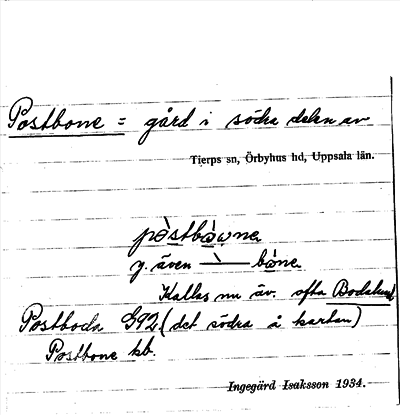 Postbone = gård i södra delen av
Tierps sn, Örbyhus hd, Uppsala län.
pɷ̀stbɷ̀ɯna
y. även —— bɷ̀na
Kallas nu äv. ofta Bodalund
Postboda G92 (det södra å kartan)
Postbone kb.
Ingegärd Isaksson 1934.